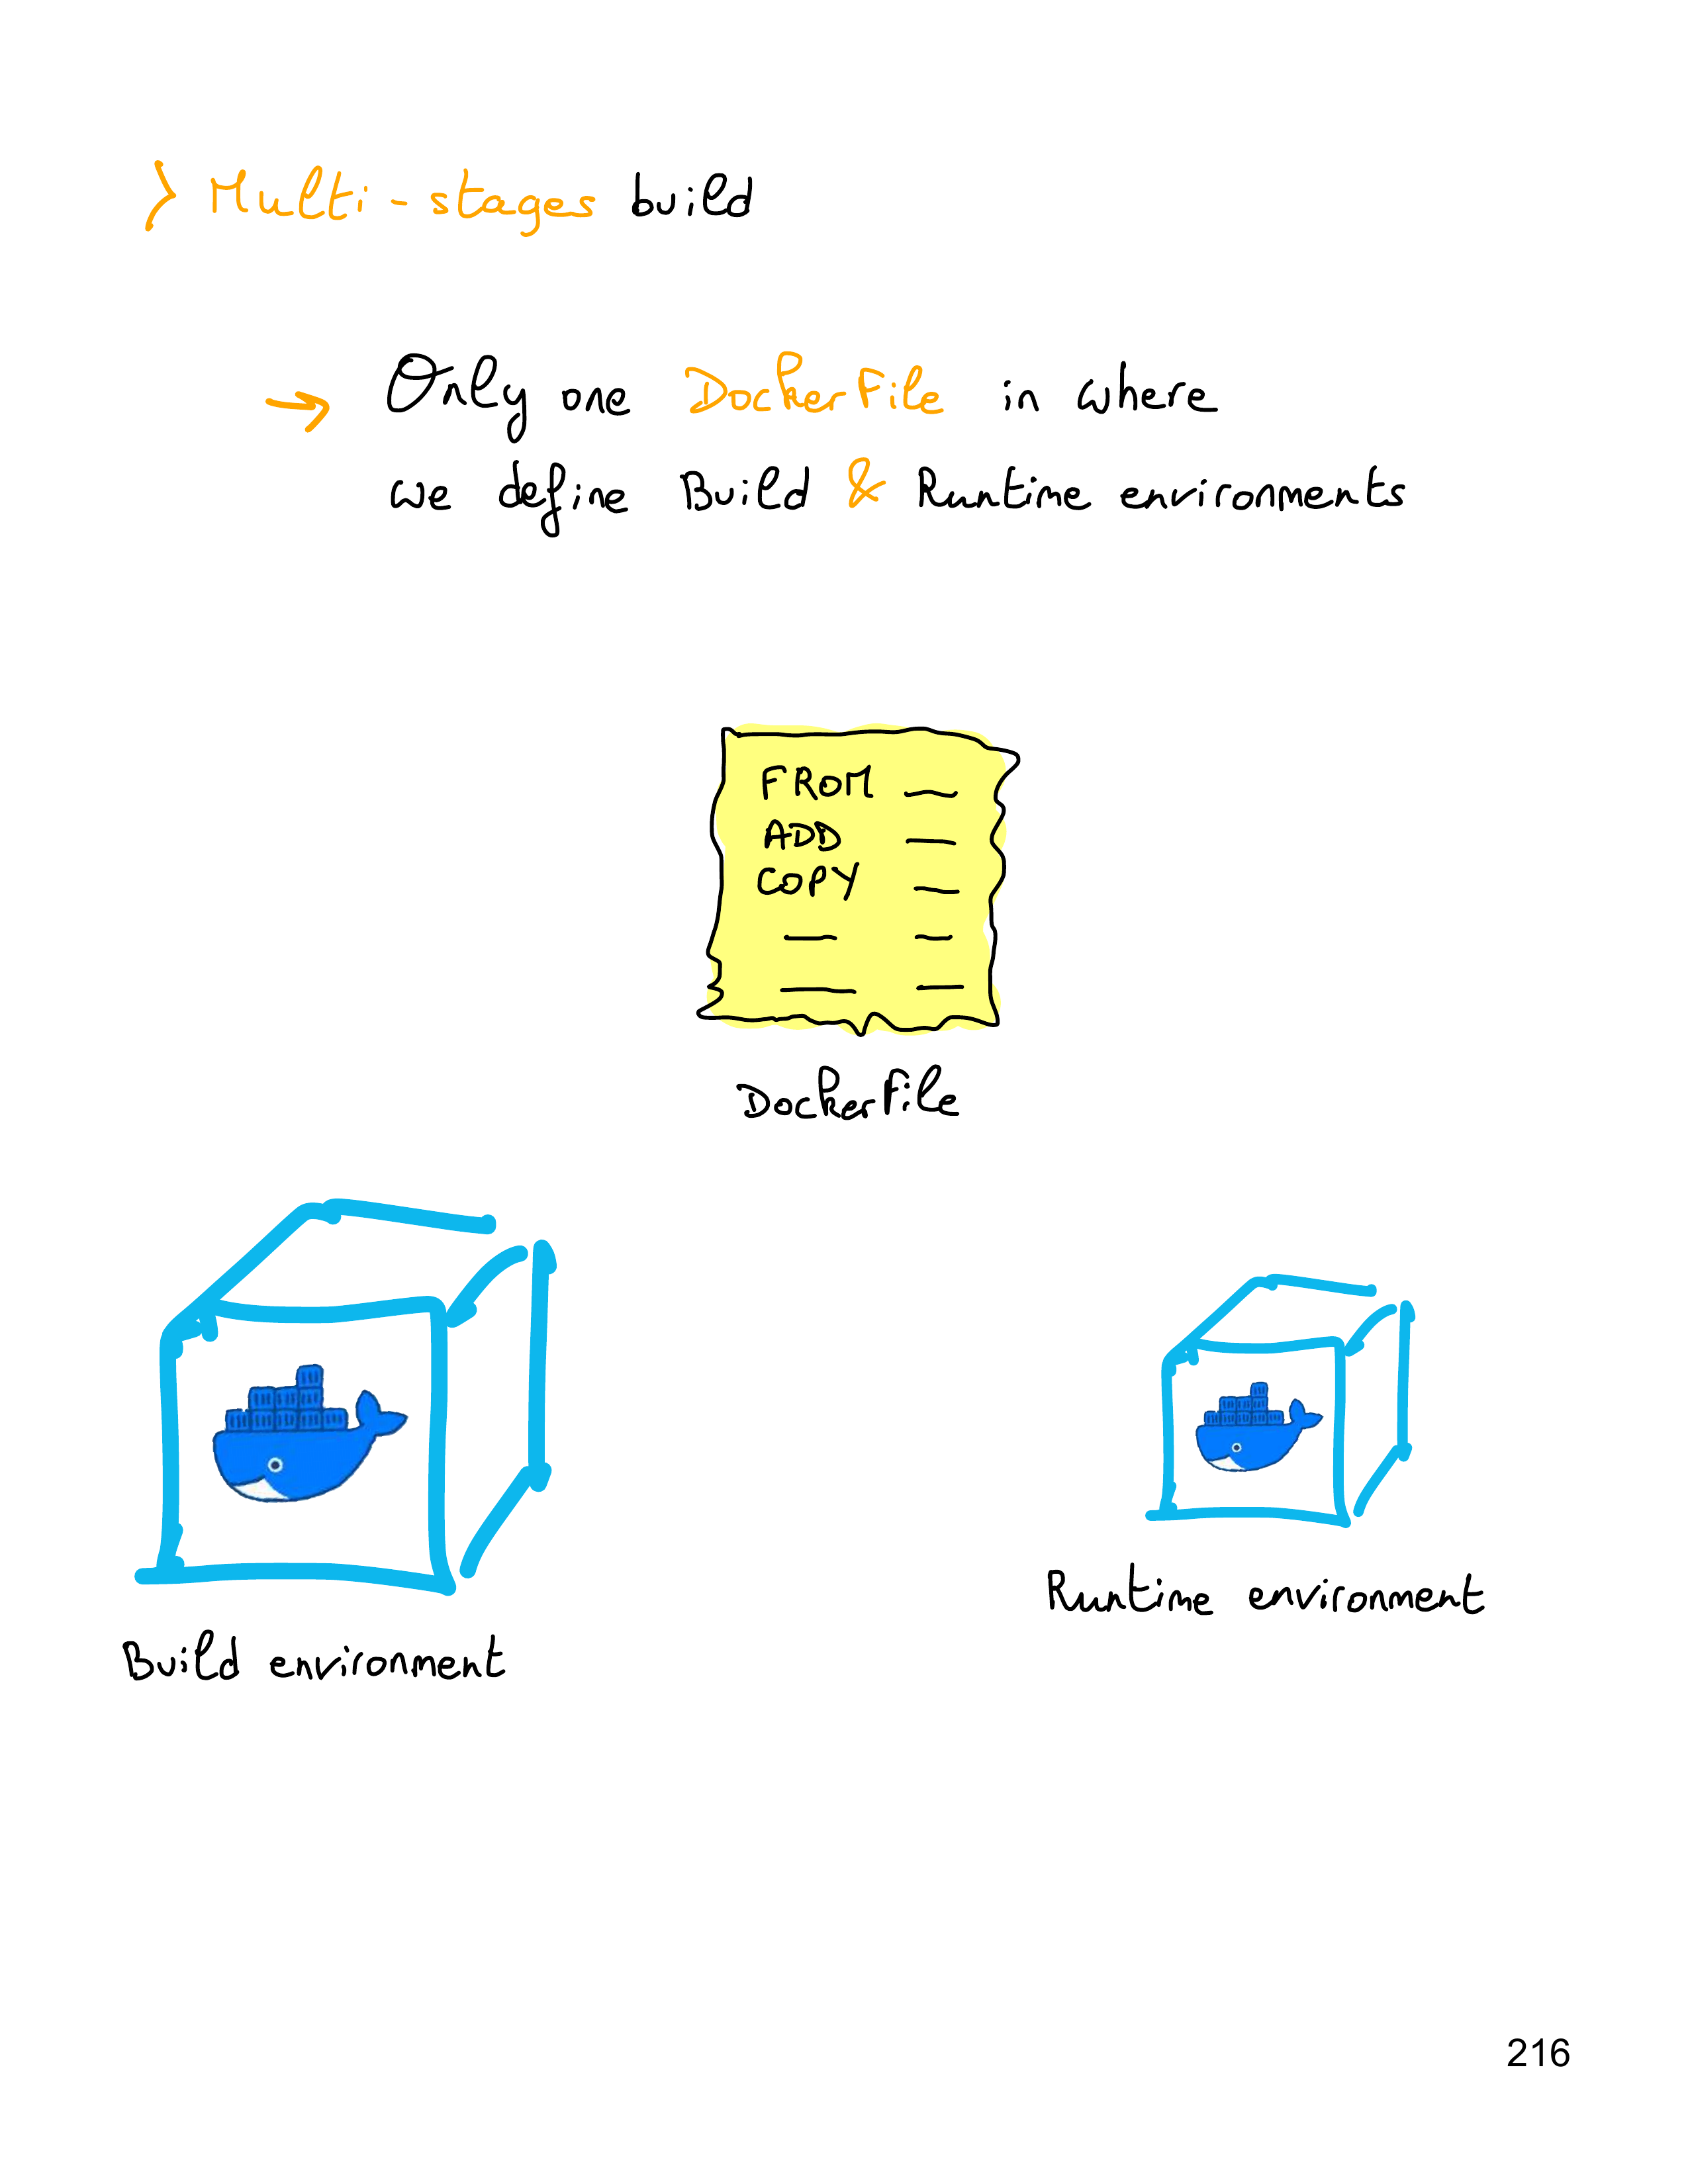 Multi-stages build
→ Only one Dockerfile in where
we define Build & Runtime environments
FROM
ADD
COPY
Dockerfile
Runtime environment
Build environment
216